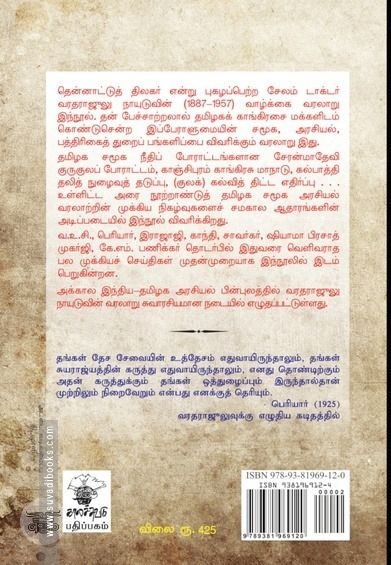 தென்னாட்டுத் திலகர் என்று புகழப்பெற்ற சேலம் டாக்டர்
வரதராஜுலு நாயுடுவின் (1887-1957) வாழ்க்கை வரலாறு
இந்நூல். தன் பேச்சாற்றலால் தமிழகக் காங்கிரசை மக்களிடம்
கொண்டுசென்ற இப்பேராளுமையின் சமூக, அரசியல்,
பத்திரிகைத் துறைப் பங்களிப்பை விவரிக்கும் வரலாறு இது.
தமிழக சமூக நீதிப் போராட்டங்களான சேரன்மாதேவி
குருகுலப் போராட்டம், காஞ்சிபுரம் காங்கிரசு மாநாடு, கல்பாத்தி
தலித் நுழைவுத் தடுப்பு, (குலக்) கல்வித் திட்ட எதிர்ப்பு . . .
உள்ளிட்ட அரை நூற்றாண்டுத் தமிழக சமூக அரசியல்
வரலாற்றின் முக்கிய நிகழ்வுகளைச் சமகால ஆதாரங்களின்
அடிப்படையில் இந்நூல் விவரிக்கிறது.
வ.உ.சி., பெரியார், இராஜாஜி, காந்தி, சாவர்கர், ஷியாமா பிரசாத்
முகர்ஜி, கே.எம். பணிக்கர் தொடர்பில் இதுவரை வெளிவராத
பல முக்கியச் செய்திகள் முதன்முறையாக இந்நூலில் இடம்
பெறுகின்றன.
அக்கால இந்திய-தமிழக அரசியல் பின்புலத்தில் வரதராஜுலு
நாயுடுவின் வரலாறு சுவாரசியமான நடையில் எழுதப்பட்டுள்ளது.
தங்கள் தேச சேவையின் உத்தேசம் எதுவாயிருந்தாலும், தங்கள்
சுயராஜ்யத்தின் கருத்து எதுவாயிருந்தாலும், எனது தொண்டிற்கும்
அதன் கருத்துக்கும் தங்கள் ஒத்துழைப்பும் இருந்தால்தான்
முற்றிலும் நிறைவேறும் என்பது எனக்குத் தெரியும்.
பெரியார் (1925)
வரதராஜுலுவுக்கு எழுதிய கடிதத்தில்
www.suvadibooks.com
காலச்சுவடு
பதிப்பகம்
விலை ரூ. 425
ISBN 978-93-81969-12-0
ISBN 938196912-4
00002
9 789381 969120